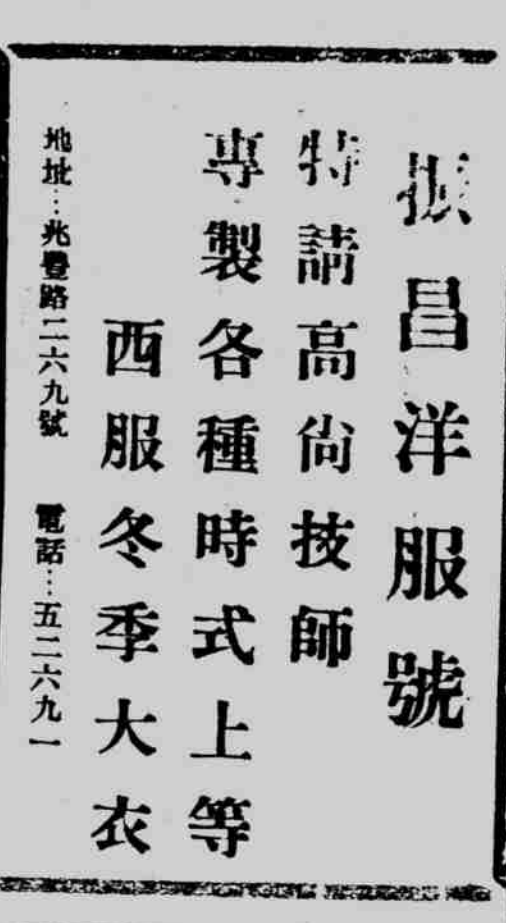 振昌洋服號
特請高尙技師
專製各種時式上等
西服冬季大衣
地址：兆豐路二六九號　電話：五二六九一